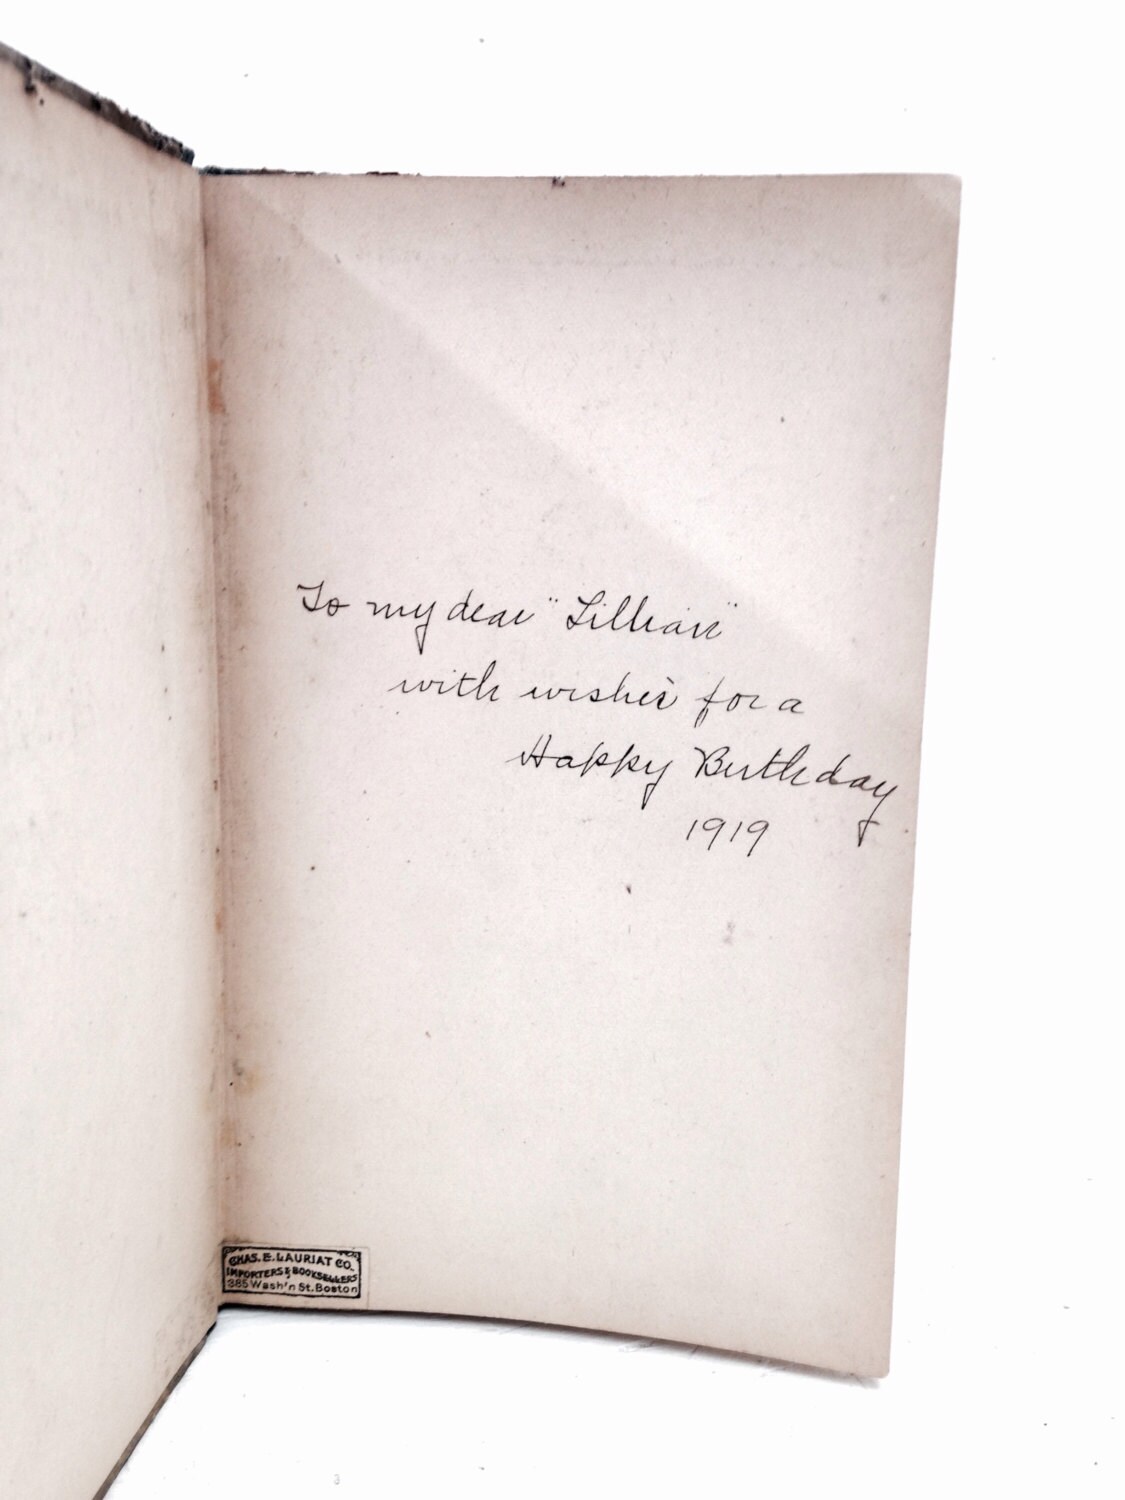 To my dear "Lillian"
with wishes for a
Happy Birthday
1919
CHAS. E. LAURIAT CO.
IMPORTERS & BOOKSELLERS
385 Wash'n St. Boston